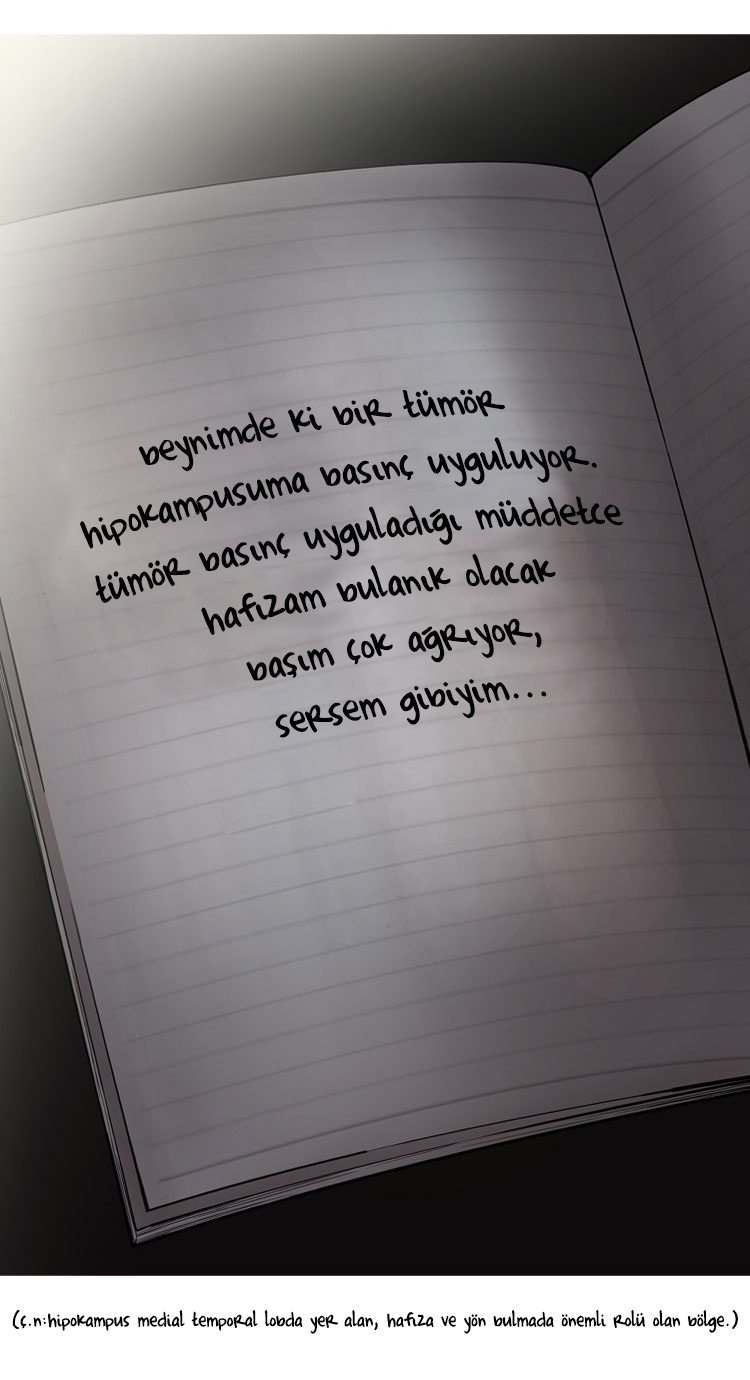 beynimde ki bir tümör
hipokampusuma basınç uyguluyor.
tümör basınç uyguladığı müddetce
hafızam bulanık olacak
başım çok ağrıyor,
sersem gibiyim...
(ç.n:hipokampus medial temporal lobda yer alan, hafıza ve yön bulmada önemli rolü olan bölge.)